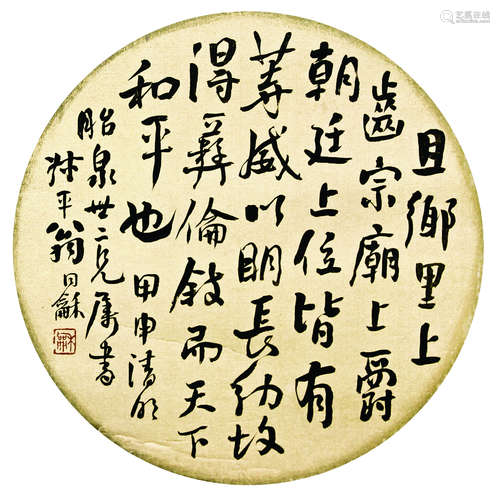 且鄉里上
齒宗廟上爵
朝廷上位皆有
等威以明長幼故
得彝倫敘而天下
和平也 甲申清明
胎泉世二兄屬書
妹平翁同龢